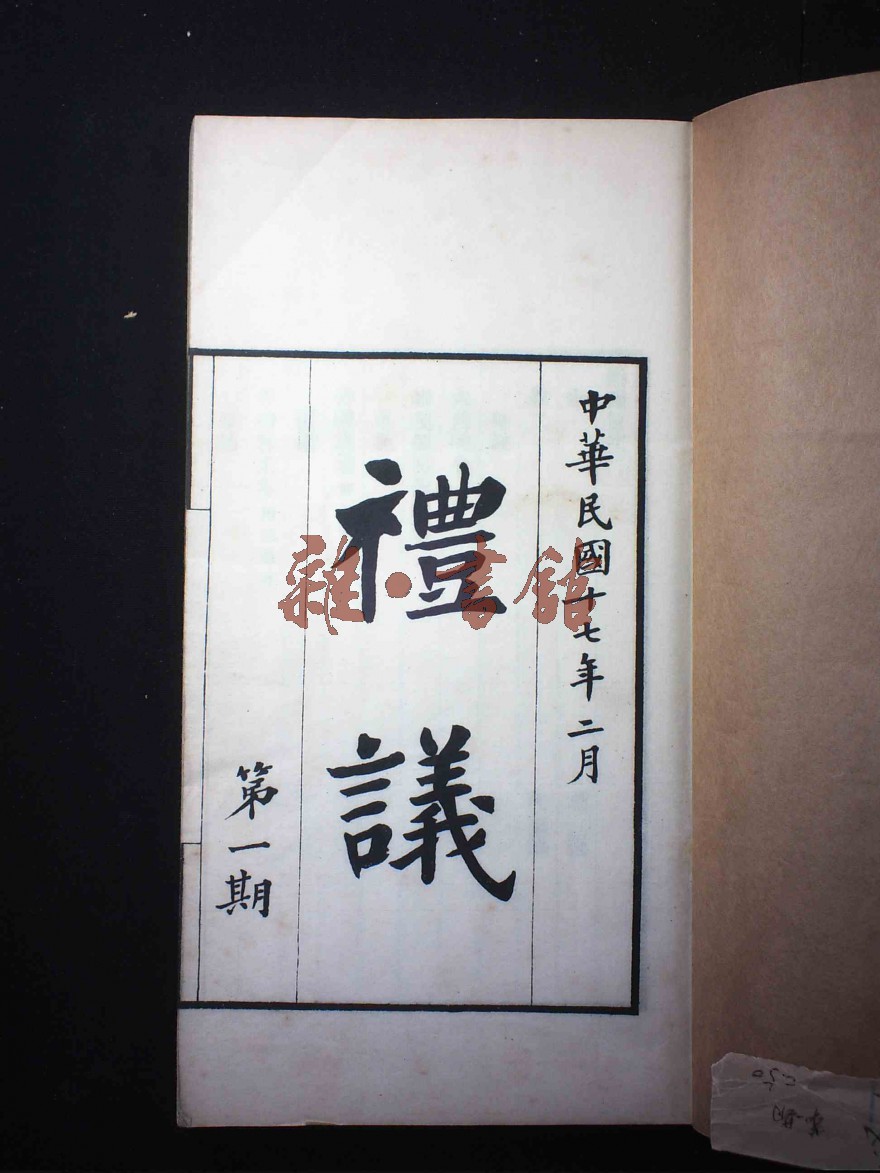 中華民國十七年二月
禮議
第一期
雜·書館